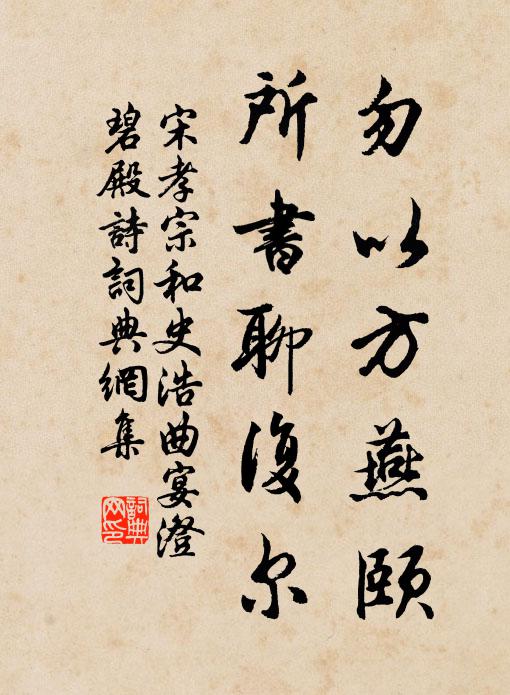 勿以方燕頤
所書聊復尔
宋孝宗和史浩曲宴澄
碧殿詩詞典網集
詞典网印